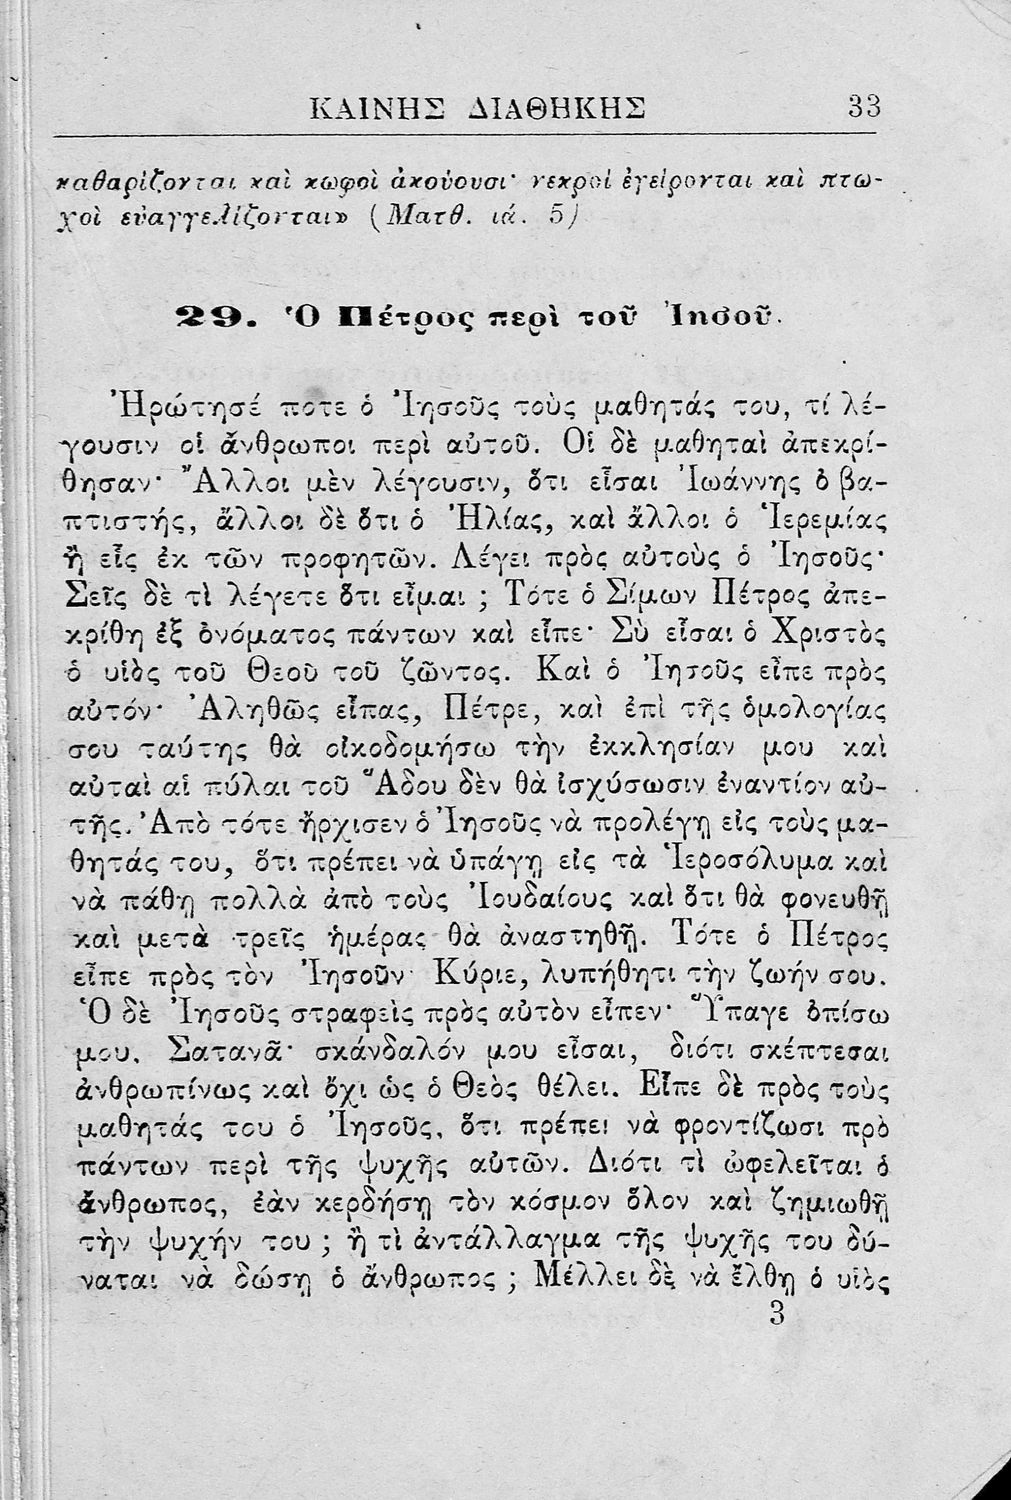 ΚΑΙΝΗΣ ΔΙΑΘΗΚΗΣ 33
καθαρίζονται καὶ κωφοὶ ἀκούουσι· νεκροὶ ἐγείρονται καὶ πτω-
χοὶ εὐαγγελίζονται» (Ματθ. ιά. 5)
29. Ὁ Πέτρος περὶ τοῦ Ἰησοῦ.
Ἠρώτησέ ποτε ὁ Ἰησοῦς τοὺς μαθητάς του, τί λέ-
γουσιν οἱ ἄνθρωποι περὶ αὐτοῦ. Οἱ δὲ μαθηταὶ ἀπεκρί-
θησαν· Ἄλλοι μὲν λέγουσιν, ὅτι εἶσαι Ἰωάννης ὁ βα-
πτιστής, ἄλλοι δὲ ὅτι ὁ Ἠλίας, καὶ ἄλλοι ὁ Ἱερεμίας
ἢ εἷς ἐκ τῶν προφητῶν. Λέγει πρὸς αὐτοὺς ὁ Ἰησοῦς·
Σεῖς δὲ τὶ λέγετε ὅτι εἶμαι ; Τότε ὁ Σίμων Πέτρος ἀπε-
κρίθη ἐξ ὀνόματος πάντων καὶ εἶπε· Σὺ εἶσαι ὁ Χριστὸς
ὁ υἱὸς τοῦ Θεοῦ τοῦ ζῶντος. Καὶ ὁ Ἰησοῦς εἶπε πρὸς
αὐτόν· Ἀληθῶς εἶπας, Πέτρε, καὶ ἐπὶ τῆς ὁμολογίας
σου ταύτης θὰ οἰκοδομήσω τὴν ἐκκλησίαν μου καὶ
αὐταὶ αἱ πύλαι τοῦ ᾅδου δὲν θὰ ἰσχύσωσιν ἐναντίον αὐ-
τῆς. Ἀπὸ τότε ἤρχισεν ὁ Ἰησοῦς νὰ προλέγῃ εἰς τοὺς μα-
θητάς του, ὅτι πρέπει νὰ ὑπάγῃ εἰς τὰ Ἱεροσόλυμα καὶ
νὰ πάθῃ πολλὰ ἀπὸ τοὺς Ἰουδαίους καὶ ὅτι θὰ φονευθῇ
καὶ μετὰ τρεῖς ἡμέρας θὰ ἀναστηθῇ. Τότε ὁ Πέτρος
εἶπε πρὸς τὸν Ἰησοῦν· Κύριε, λυπήθητι τὴν ζωήν σου.
Ὁ δὲ Ἰησοῦς στραφεὶς πρὸς αὐτὸν εἶπεν· Ὕπαγε ὀπίσω
μου, Σατανᾶ· σκάνδαλόν μου εἶσαι, διότι σκέπτεσαι
ἀνθρωπίνως καὶ ὄχι ὡς ὁ Θεὸς θέλει. Εἶπε δὲ πρὸς τοὺς
μαθητάς του ὁ Ἰησοῦς, ὅτι πρέπει νὰ φροντίζωσι πρὸ
πάντων περὶ τῆς ψυχῆς αὐτῶν. Διότι τὶ ὠφελεῖται ὁ
ἄνθρωπος, ἐὰν κερδήσῃ τὸν κόσμον ὅλον καὶ ζημιωθῇ
τὴν ψυχήν του ; ἢ τὶ ἀντάλλαγμα τῆς ψυχῆς του δύ-
ναται νὰ δώσῃ ὁ ἄνθρωπος ; Μέλλει δὲ νὰ ἔλθῃ ὁ υἱὸς
3